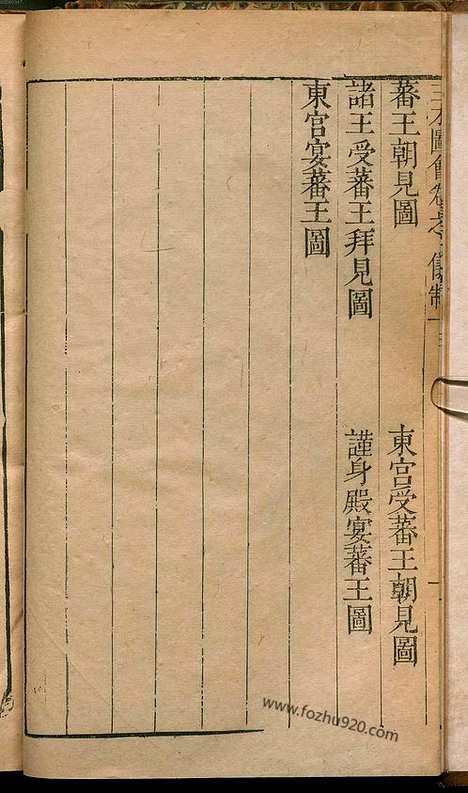 蕃王朝見圖
東宮受蕃王朝見圖
諸王受蕃王拜見圖
謹身殿宴蕃王圖
東宮宴蕃王圖
www.fozhu920.com